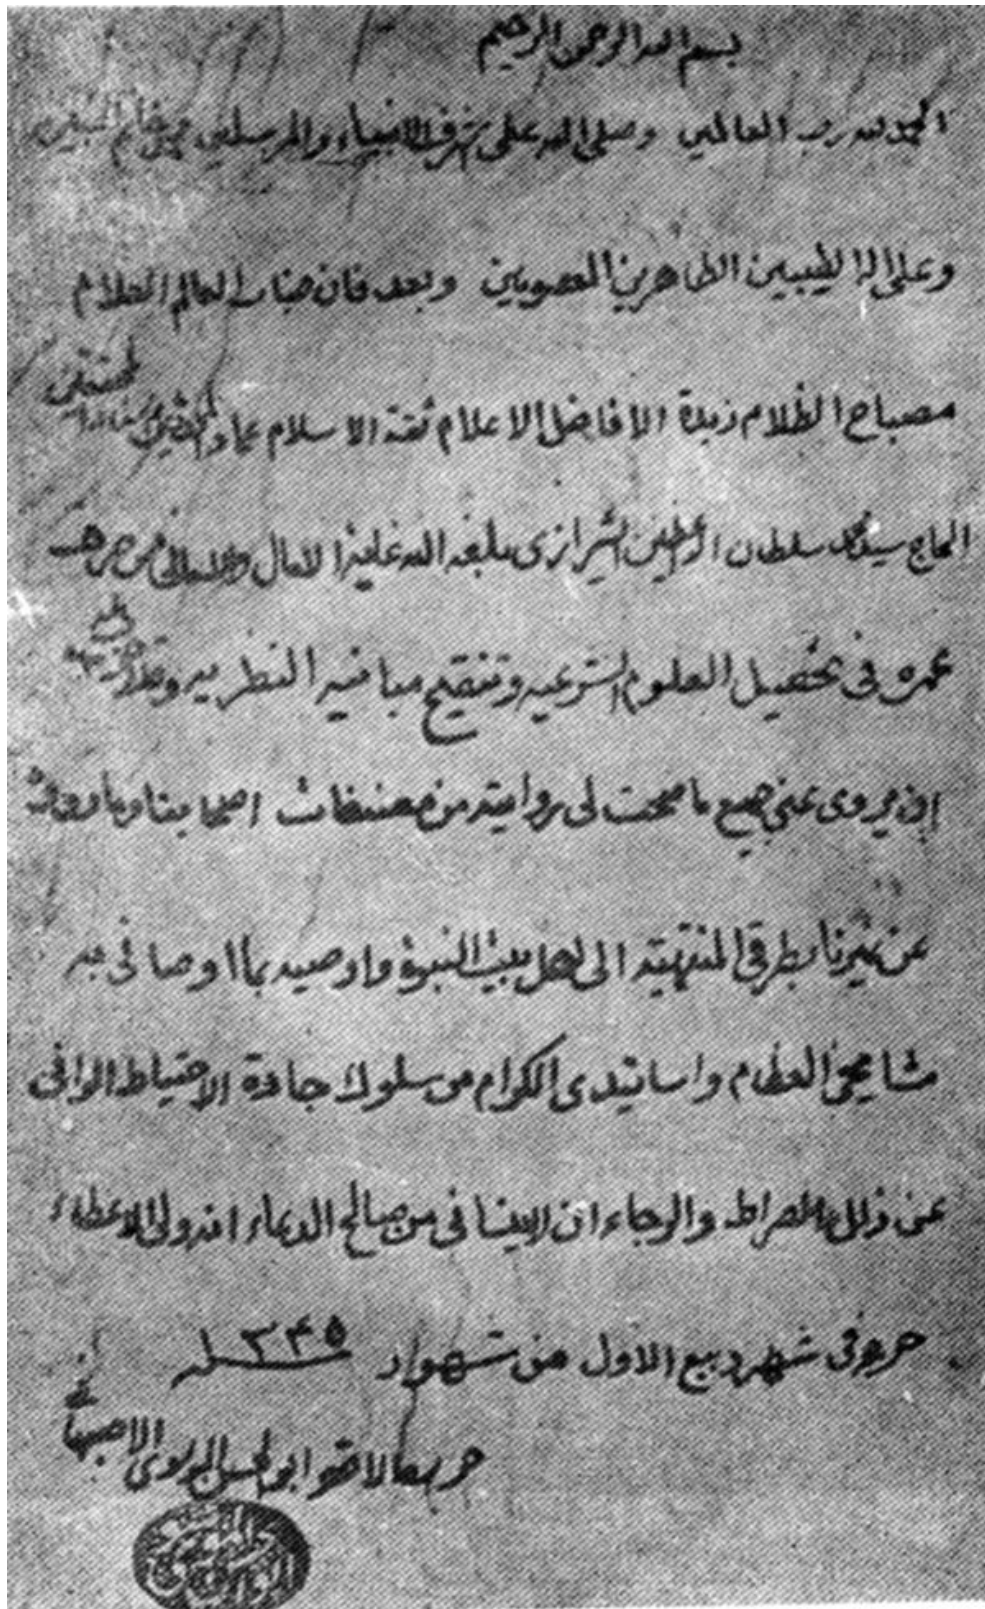 بسم الله الرحمن الرحيم
الحمد لله رب العالمين وصلى الله على اشرف الانبياء والمرسلين محمد خاتم النبيين
وعلى اله الطيبين الطاهرين المعصومين وبعد فان جناب العالم العلام
مصباح الظلام زبدة الافاضل الاعلام ثقة الاسلام عماد المحققين
الحاج سيد محمد سلطان الواعظين الشيرازى بلغه الله غاية الامال ممن صرف
عمره فى تحصيل العلوم الشرعيه وتنقيح مبانيه النظريه وقد
ان يروى عنى جميع ما صحت لى روايته من مصنفات اصحابنا وما رووه
عن غيرنا بطرقى المنتهية الى اهل بيت النبوة واوصيه بما اوصانى به
مشايخى العظام واساتيدى الكرام من سلوك جادة الاحتياط الواقى
عن ذلل الصراط والرجاء ان لا ينسانى من صالح الدعاء انه ولى الاعطاء
حرر فى شهر ربيع الاول من شهور سنه ١٣٤٥
حرره الاحقر ابو الحسن الموسوى الاصبهانى